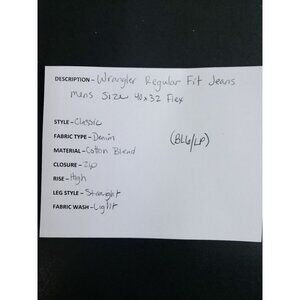 DESCRIPTION – Wrangler Regular Fit Jeans
Mens Size 40x32 Flex
STYLE – Classic
FABRIC TYPE – Denim
(BL6/LP)
MATERIAL – Cotton Blend
CLOSURE – Zip
RISE – High
LEG STYLE – Straight
FABRIC WASH – Light